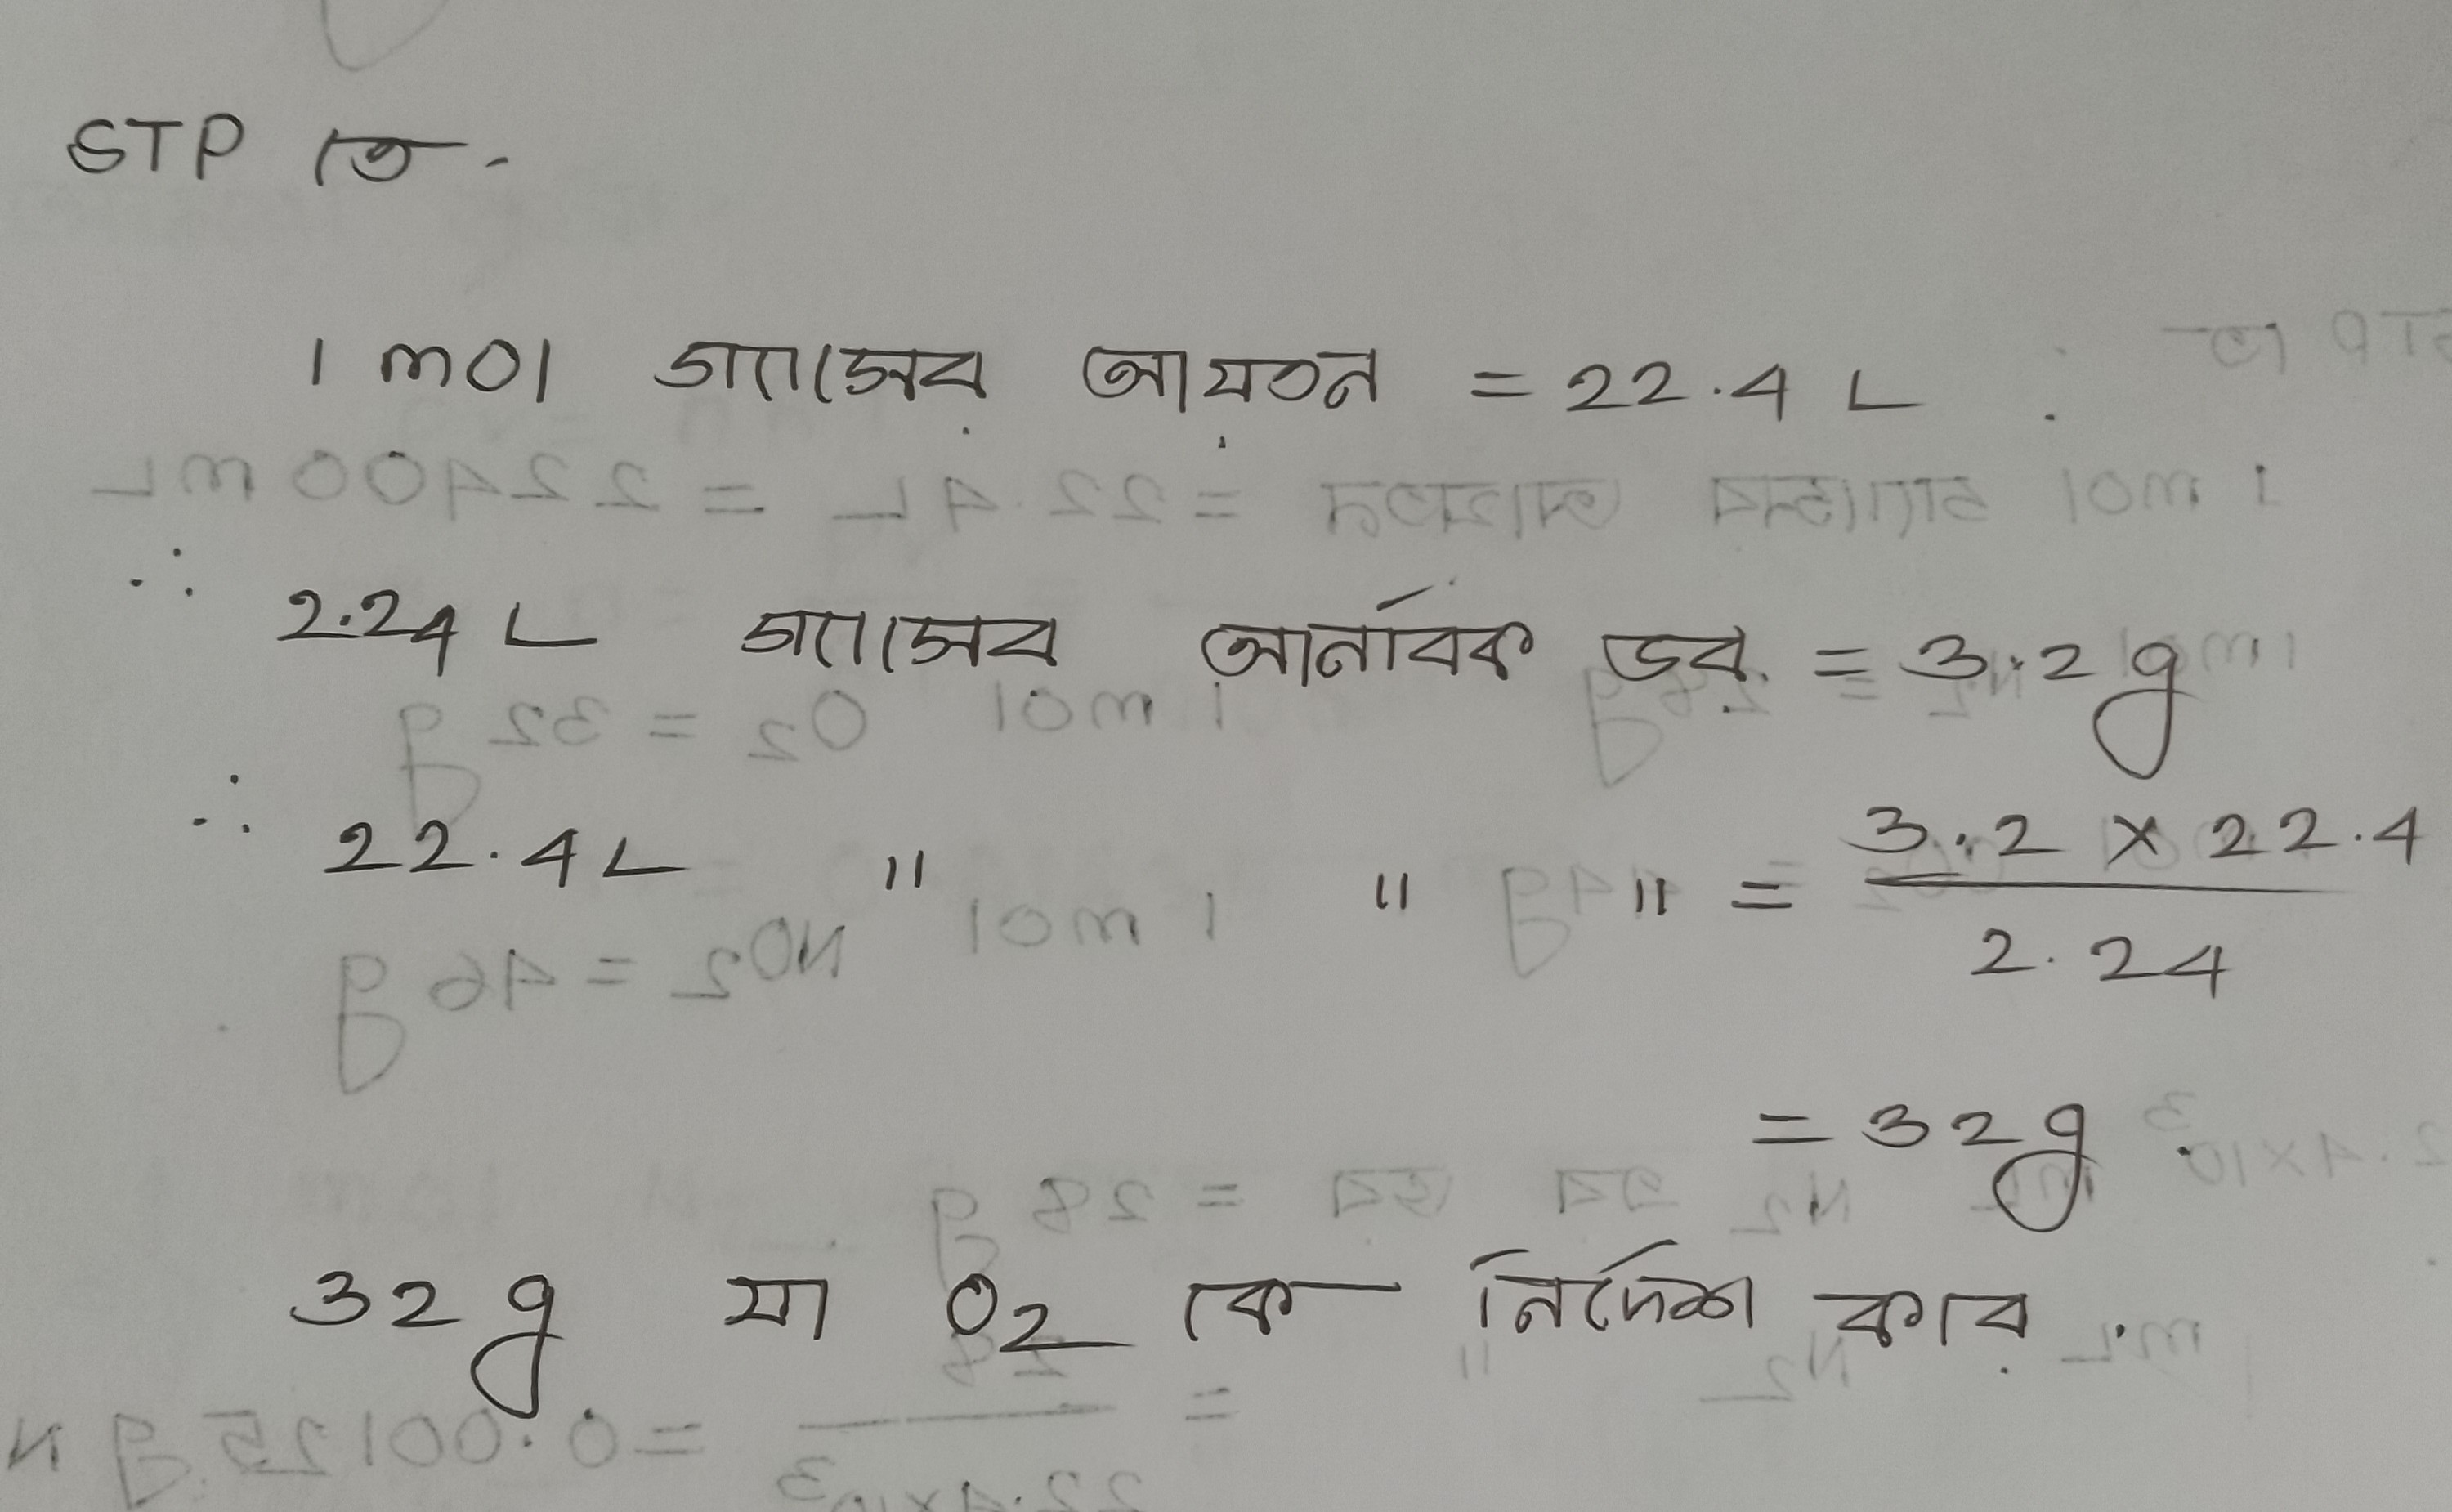 STP তে -
1 mol গ্যাসের আয়তন = 22.4 L
∴ 2.24 L গ্যাসের আনবিক ভর = 3.2 g
∴ 22.4 L " " " = 3.2 × 22.4
2.24
= 32 g
32 g যা O2 কে নির্দেশ করে.